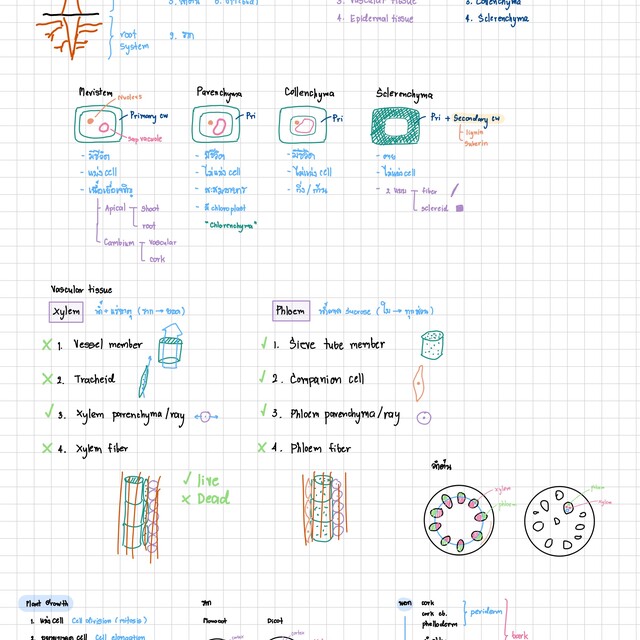 3. Vascular tissue
3. Collenchyma
root system
2. ราก
4. Epidermal tissue
4. Sclerenchyma
Meristem
Parenchyma
Collenchyma
Sclerenchyma
nucleus
Primary cw
Pri
Pri
Pri + Secondary cw
lignin
suberin
Sap vacuole
- มีชีวิต
- มีชีวิต
- มีชีวิต
- ตาย
- แบ่ง cell
- ไม่แบ่ง cell
- ไม่แบ่ง cell
- ไม่แบ่ง cell
- เนื้อเยื่อเจริญ
- สะสมอาหาร
- กิ่ง / ก้าน
- 2 แบบ
fiber
Apical
shoot
- มี chloroplast
sclereid
root
"Chlorenchyma"
Cambium
vascular
cork
Vascular tissue
Xylem
น้ำ + แร่ธาตุ (ราก → ยอด)
Phloem
น้ำตาล Sucrose (ใบ → ทุกส่วน)
X 1. Vessel member
✓ 1. Sieve tube member
X 2. Tracheid
✓ 2. Companion cell
✓ 3. Xylem parenchyma/ray
✓ 3. Phloem parenchyma/ray
X 4. Xylem fiber
X 4. Phloem fiber
ลำต้น
✓ live
X Dead
xylem
phloem
phloem
xylem
Plant Growth
ราก
cork
1. แบ่ง cell Cell division (mitosis)
Monocot
Dicot
cork cb.
phelloderm
periderm
Cell elongation
cortex
cortex
bark